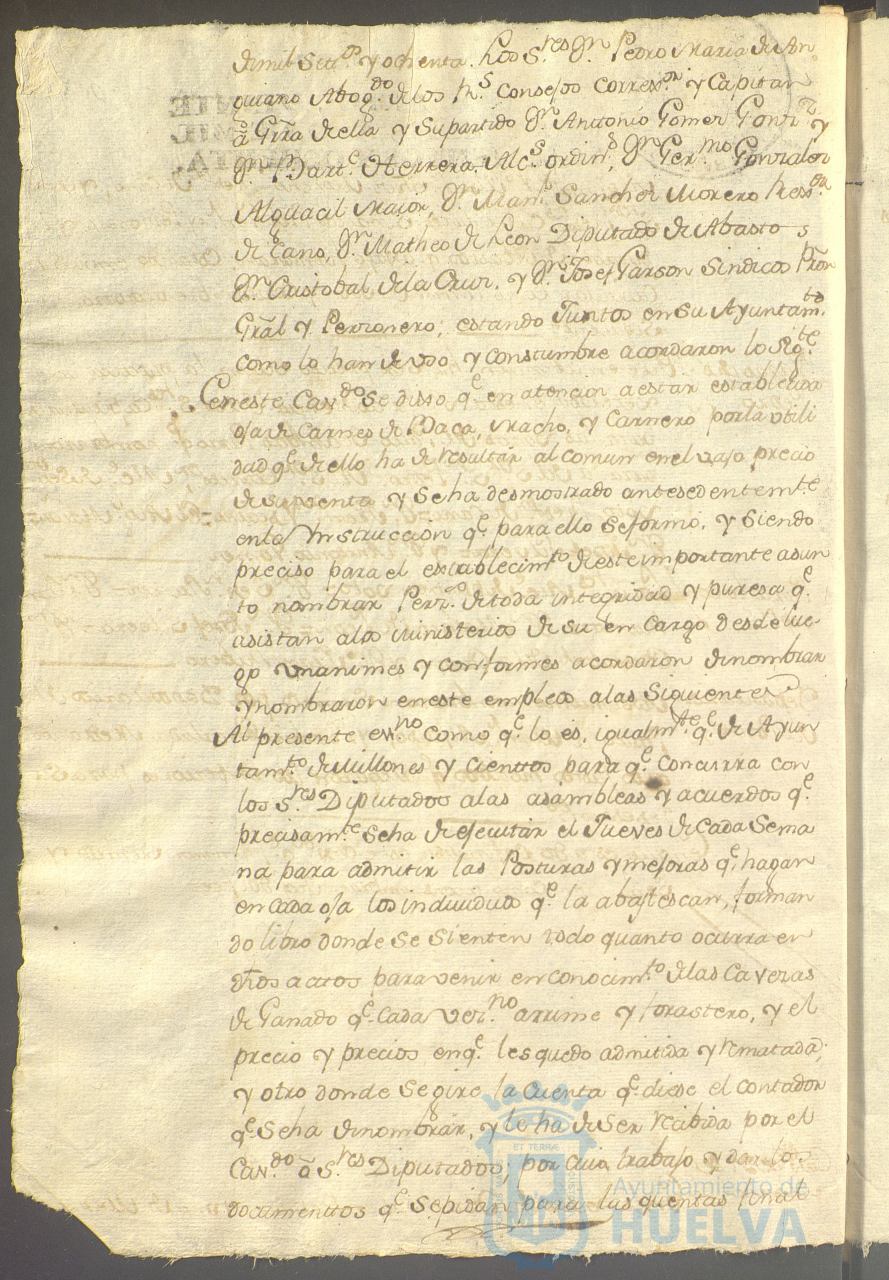 de mil Setos y ochenta. Los Sres Dn Pedro Maria de An
guiano Abogdo de los Rs Consejos Correxor y Capitan
a Grra de ella y su partido Dn Anttonio Gomez Gonzz y
Dn Barte Herrera, Alcs ordins, Dn Germo Gonzalez
Alguacil Maior, Dn Manl Sanchez Moreno
de Cano, Dn Matheo de Leon Diputado de Abastos
Dn Cristobal de la Cruz, y Dn Josef Garzon Sindicos Prôn
Gral y Perzonero; estando Juntos en su Ayuntamto
como lo han de vso y constumbre acordaron lo Sigte
En este Cavdo se disso qe en atencion a estar establecida
oja de Carnes de Baca, Macho, y Carnero por la vtili
dad qe de ello ha de resultar al comun en el vajo precio
de su venta y se ha desmostrado antesedentemte
en la Ynstruccion qe para ello se formó, y siendo
preciso para el extablecimto de este importante asun
to nombrar Perzs de toda integridad y puresa qe
asistan a los Ministerios de su en cargo desde lue
go vnanimes y conformes acordaron de nombrar
y nombraron en este empleo a las Siguientes
Al presente esno como qe lo es, igualmte qe de Ayun
tamto de Millones y cientos para qe concurra con
los Sres Diputados a las asambleas y acuerdos qe
precisamte se ha de ejecutar el Jueves de cada Sema
na para admitir las Posturas y mejoras qe hagan
en cada oja los individuos qe la abastescan, forman
do libro donde se Sienten todo quanto ocurra en
dhos actos para venir en conocimto de las Cavezas
de Ganado qe cada vezno arrime y forastero, y el
precio y precios en qe les quedo admitida y rematada;
y otro donde se gire la cuenta qe diese el contador
qe se ha de nombrar, y le ha de ser recibida por el
Cavdo ô Sres Diputados; por cuio trabajo y dar los
documenttos qe se pidan para las quentas final
Ayuntamiento de
HUELVA